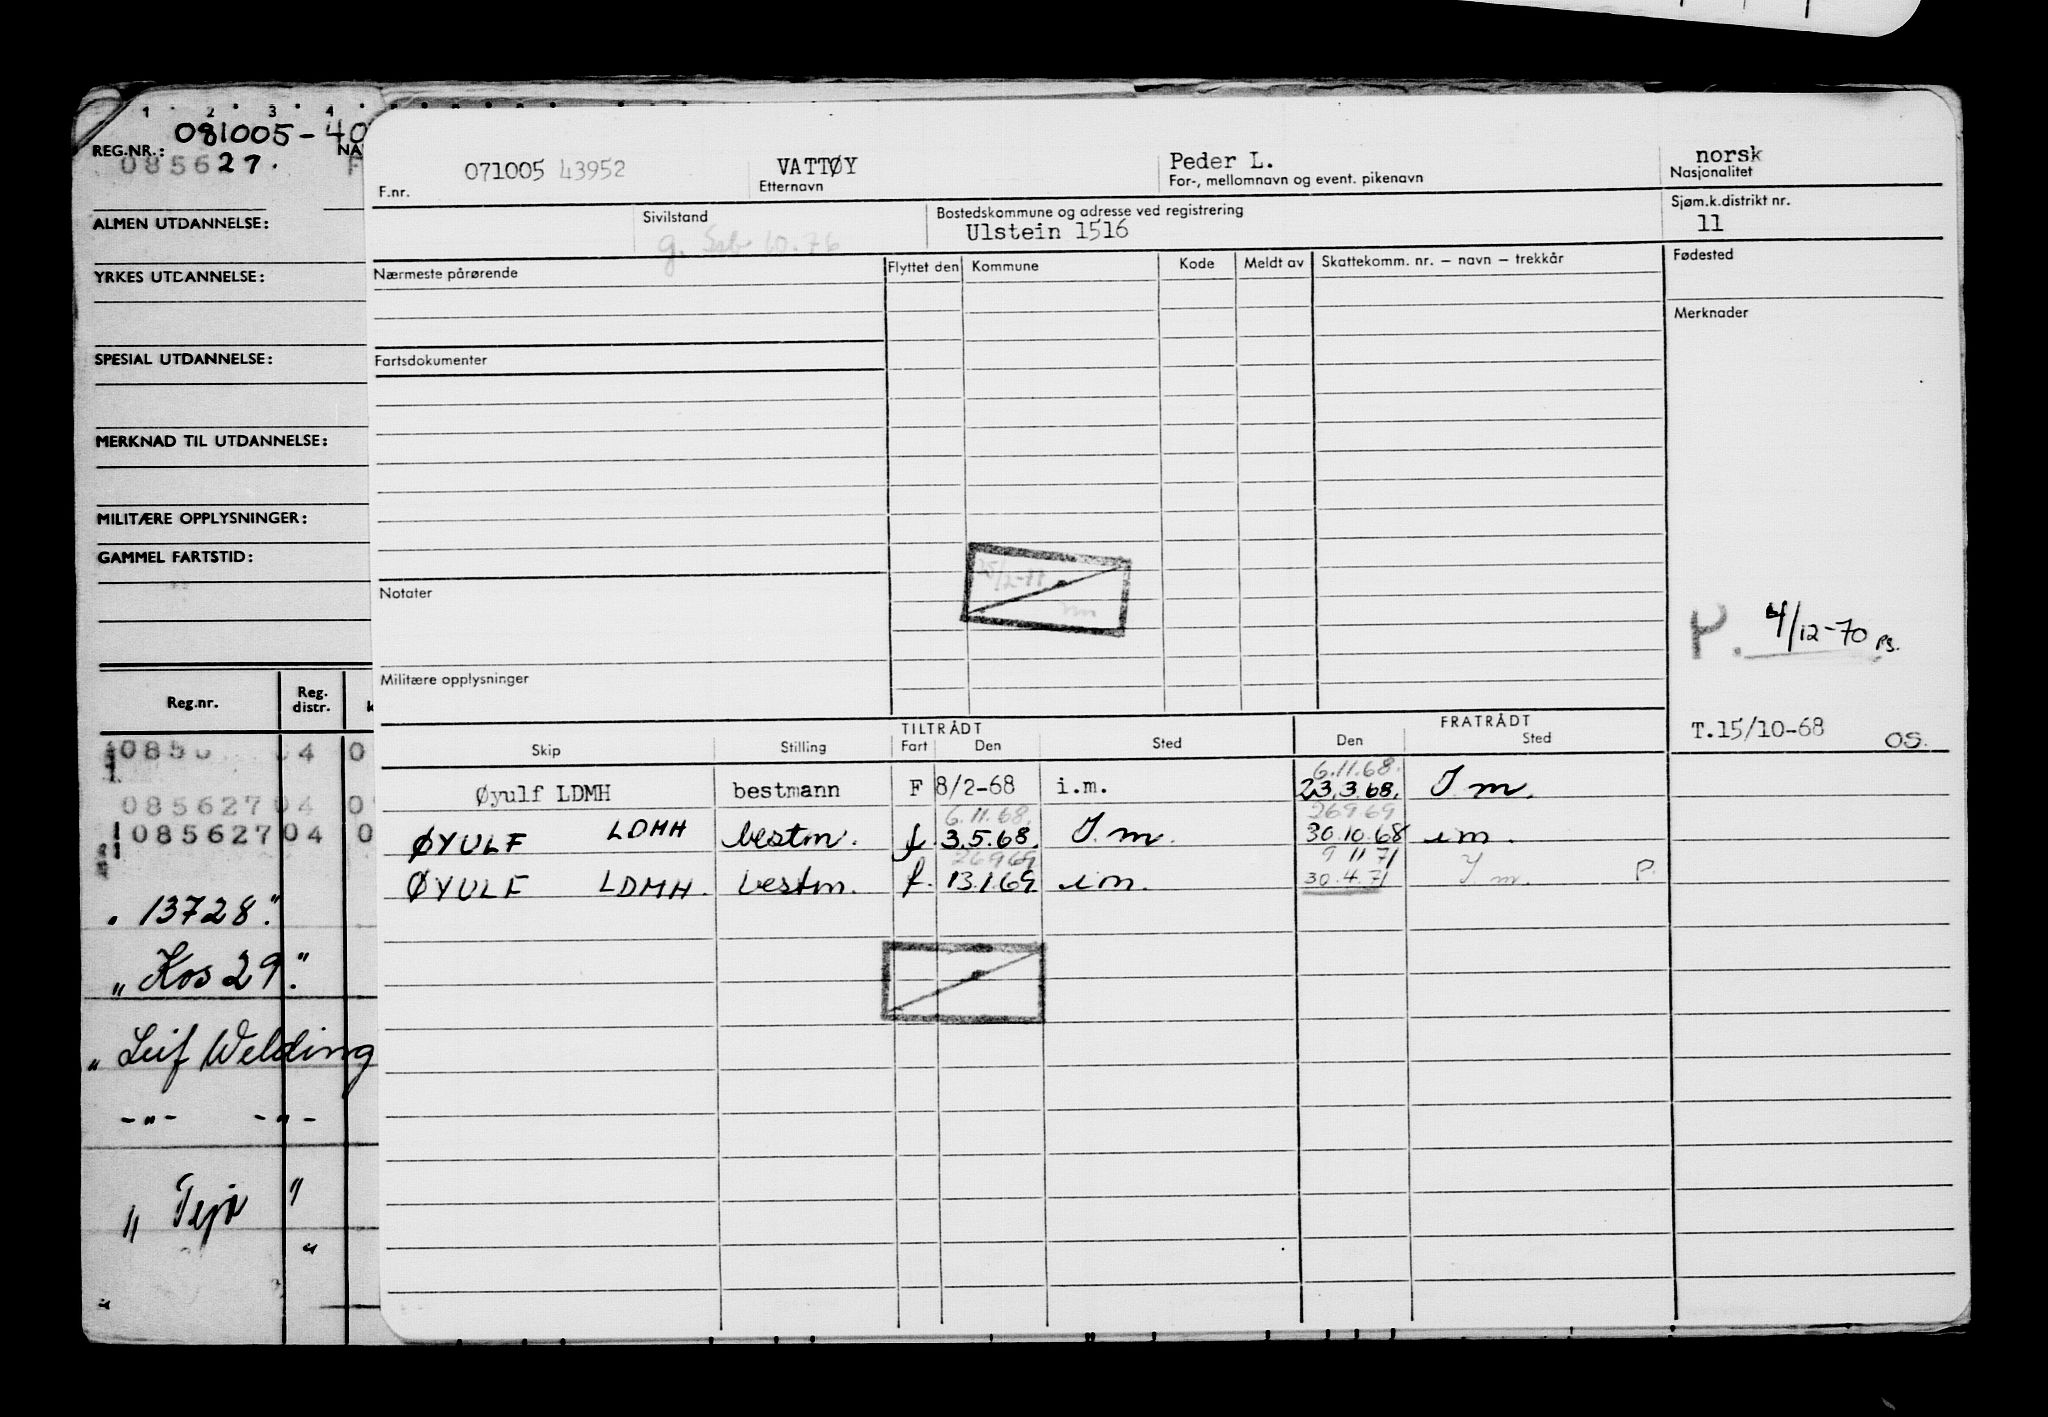 1 2 3 4
REG.NR.: 081005-40
085627.
NA
F
ALMEN UTDANNELSE:
YRKES UTDANNELSE:
SPESIAL UTDANNELSE:
MERKNAD TIL UTDANNELSE:
MILITÆRE OPPLYSNINGER:
GAMMEL FARTSTID:
Reg.nr. Reg. distr. k
0856 04 0
085627 04 0
085627 04 0
" 13728".
" Kos 29".
" Leif Welding
-"- -"-
" Teja "
"
F.nr. 071005 43952
VATTØY
Etternavn
Peder L.
For-, mellomnavn og event. pikenavn
norsk
Nasjonalitet
Sivilstand
g. 10.76
Bostedskommune og adresse ved registrering
Ulstein 1516
Sjøm.k.distrikt nr.
11
Nærmeste pårørende
Flyttet den Kommune Kode Meldt av Skattekomm. nr. – navn – trekkår
Fødested
Merknader
Fartsdokumenter
Notater
P. 4/12-70 ps.
Militære opplysninger
T.15/10-68 OS.
TILTRÅDT FRATRÅDT
Skip Stilling Fart Den Sted Den Sted
6.11.68.
Øyulf LDMH bestmann F 8/2-68 i.m. 23.3.68. I m.
6.11.68. 26969
ØYULF LDMH bestm. f. 3.5.68. I. m. 30.10.68 im.
26969 9 11 71
ØYULF LDMH. bestm. f. 13.1.69 im. 30.4.71 I m. P.